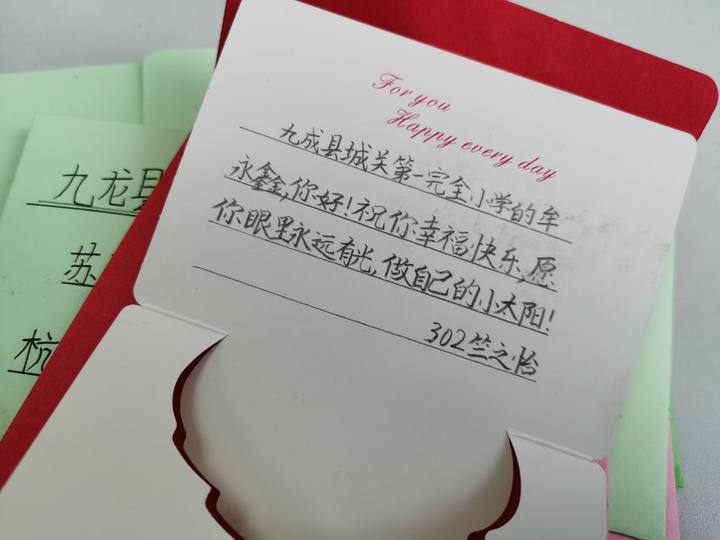 For you
Happy every day
九成县城关第一完全小学的牟
永鑫,你好!祝你幸福快乐,愿
你眼里永远有光,做自己的小太阳!
302竺之怡
九龙县
苏
杭